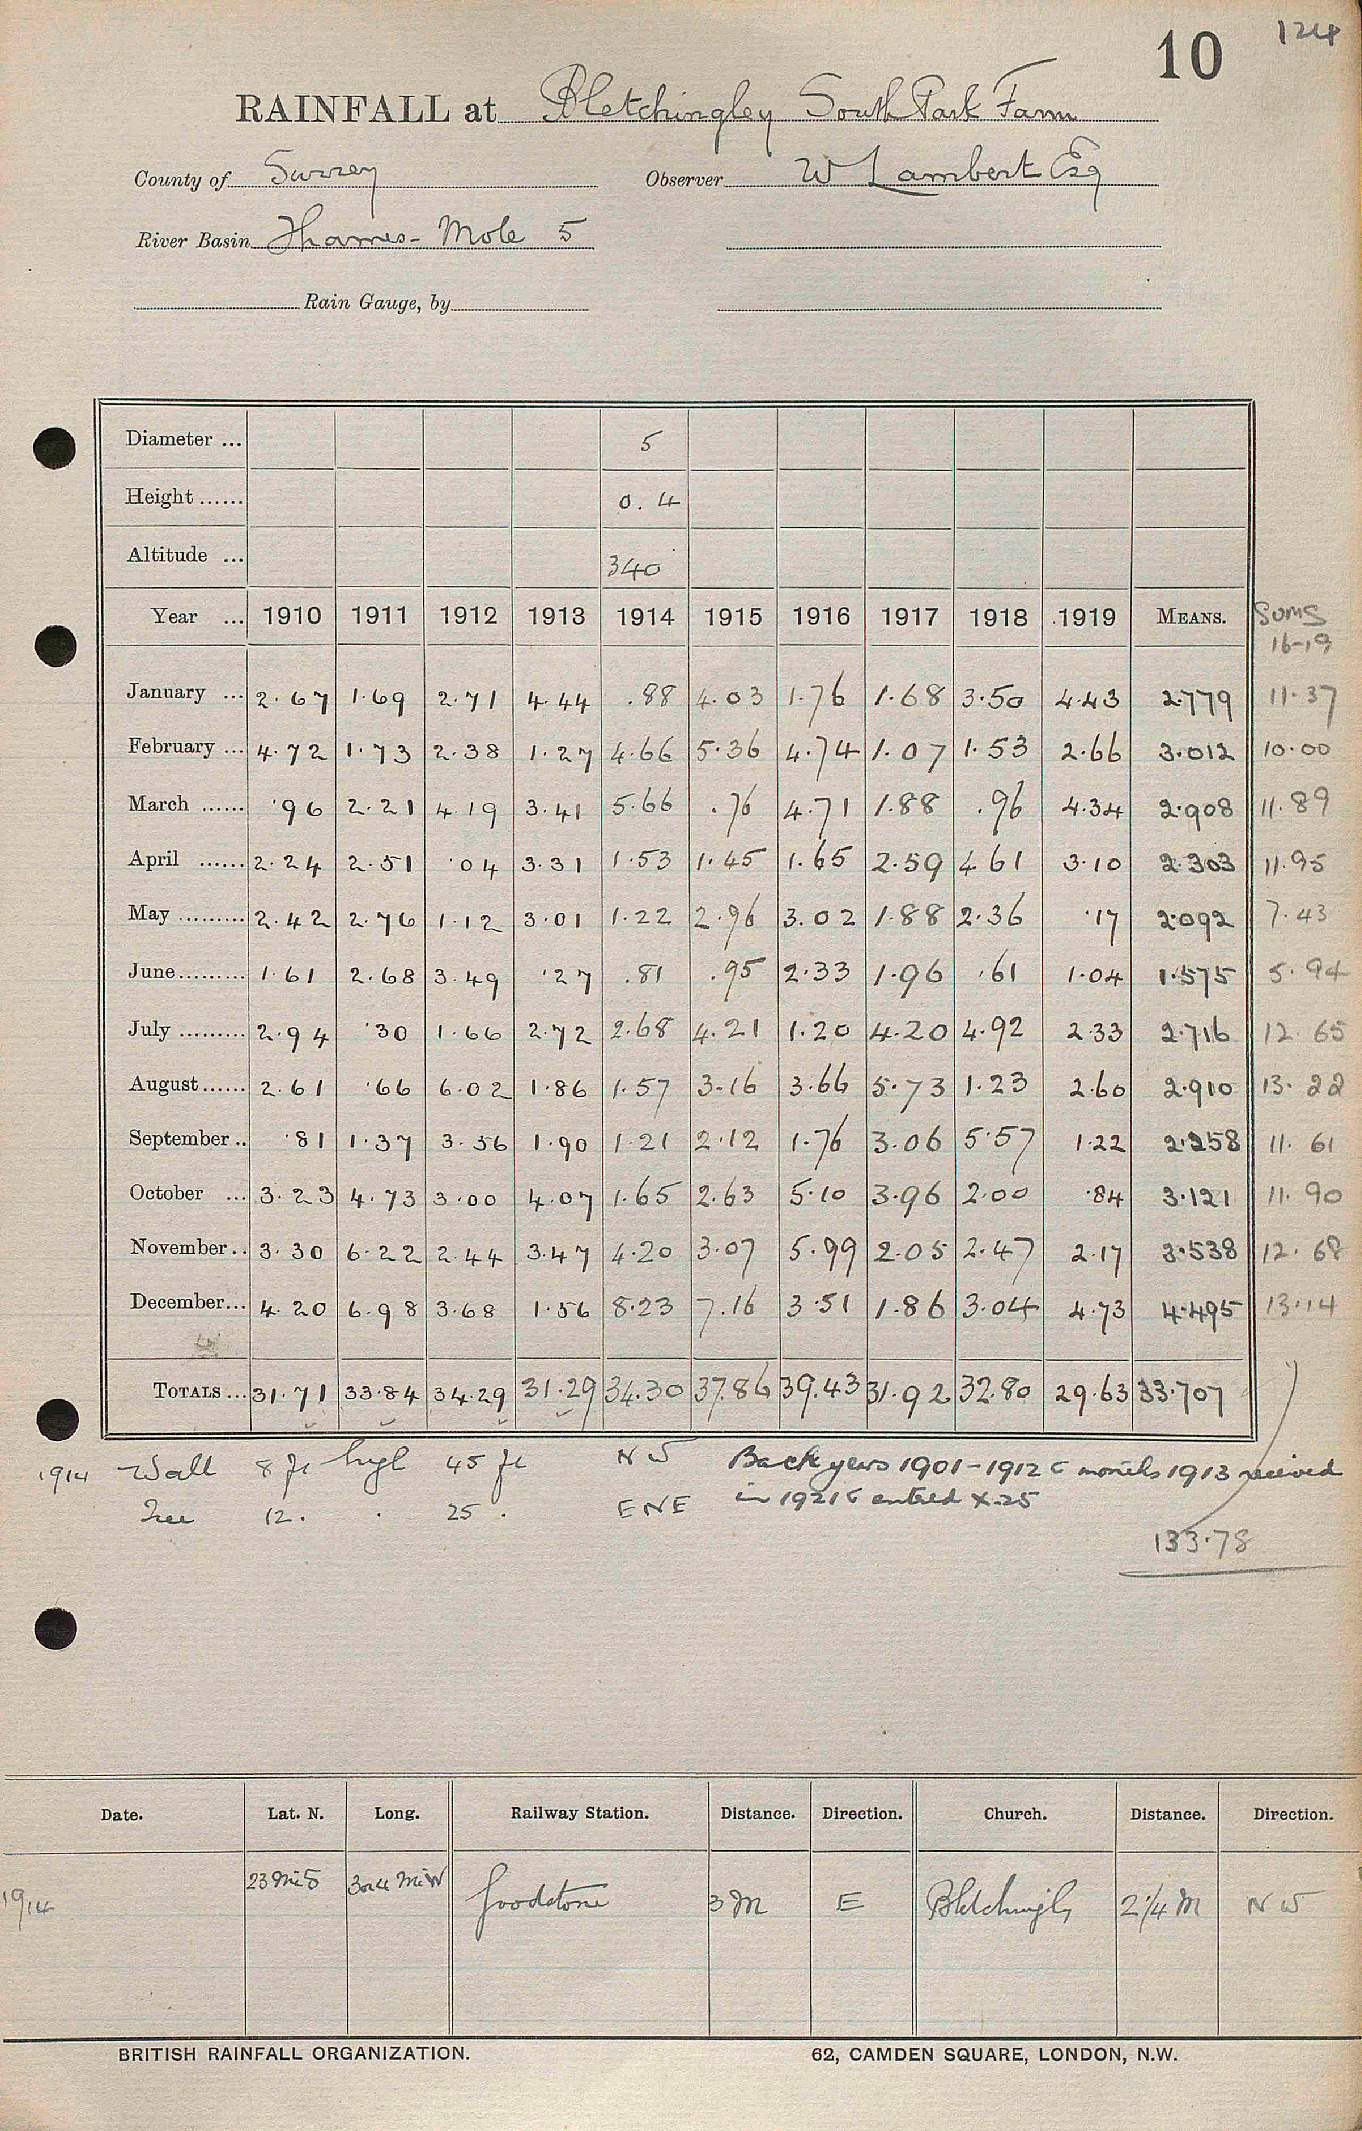 124
10
RAINFALL at Bletchingley South Park Farm
County of Surrey Observer W Lambert Esq
River Basin Thames - Mole 5
Rain Gauge, by
Diameter ... 5
Height ...... 0.4
Altitude ... 340
Year ... 1910 1911 1912 1913 1914 1915 1916 1917 1918 1919 MEANS. Sums 16-19
January ... 2.67 1.69 2.71 4.44 .88 4.03 1.76 1.68 3.50 4.43 2.779 11.37
February ... 4.72 1.73 2.38 1.27 4.66 5.36 4.74 1.07 1.53 2.66 3.012 10.00
March ...... .96 2.21 4.19 3.41 5.66 .76 4.71 1.88 .96 4.34 2.908 11.89
April ...... 2.24 2.51 .04 3.31 1.53 1.45 1.65 2.59 4 61 3.10 2.303 11.95
May ......... 2.42 2.76 1.12 3.01 1.22 2.96 3.02 1.88 2.36 .17 2.092 7.43
June......... 1.61 2.68 3.49 .27 .81 .95 2.33 1.96 .61 1.04 1.575 5.94
July ......... 2.94 .30 1.66 2.72 2.68 4.21 1.20 4.20 4.92 2.33 2.716 12.65
August...... 2.61 .66 6.02 1.86 1.57 3.16 3.66 5.73 1.23 2.60 2.910 13.22
September .. .81 1.37 3.56 1.90 1.21 2.12 1.76 3.06 5.57 1.22 2.258 11.61
October ... 3.23 4.73 3.00 4.07 1.65 2.63 5.10 3.96 2.00 .84 3.121 11.90
November .. 3.30 6.22 2.44 3.47 4.20 3.07 5.99 2.05 2.47 2.17 3.538 12.68
December... 4.20 6.98 3.68 1.56 8.23 7.16 3.51 1.86 3.04 4.73 4.495 13.14
TOTALS ... 31.71 33.84 34.29 31.29 34.30 37.86 39.43 31.92 32.80 29.63 33.707
1914 Wall 8 ft high 45 ft NW Back years 1901-1912 & months 1913 received
Tree 12 . . 25 . ENE in 1921 & entered X.25
133.78
Date. Lat. N. Long. Railway Station. Distance. Direction. Church. Distance. Direction.
1914 23 Mi S Mi W Godstone 3 M E Bletchingly 2 1/4 M NW
BRITISH RAINFALL ORGANIZATION. 62, CAMDEN SQUARE, LONDON, N.W.